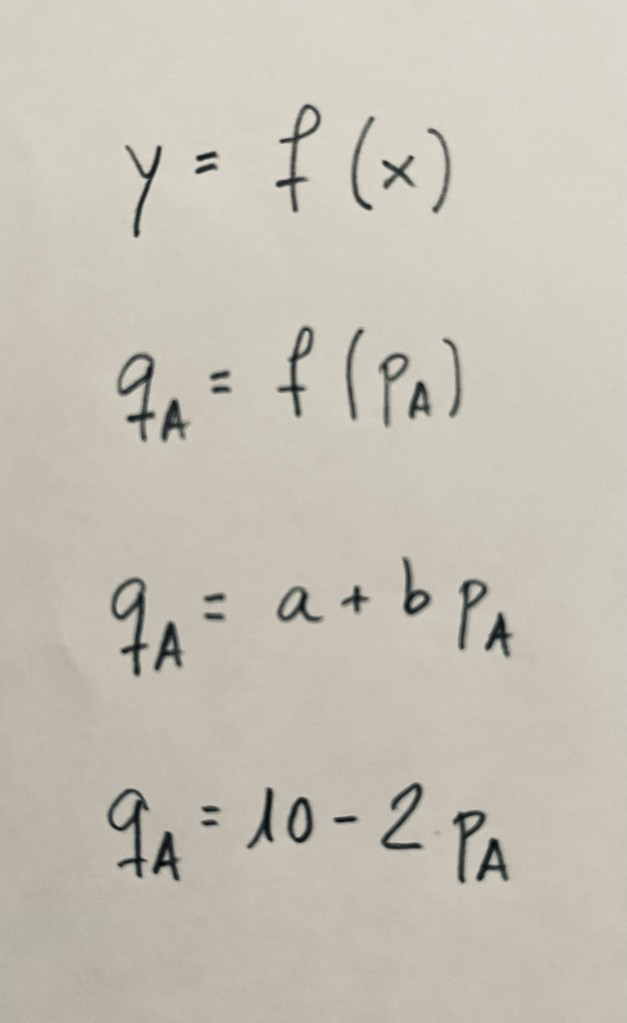 y = f (x)
q_A = f (p_A)
q_A = a + b p_A
q_A = 10 - 2 p_A